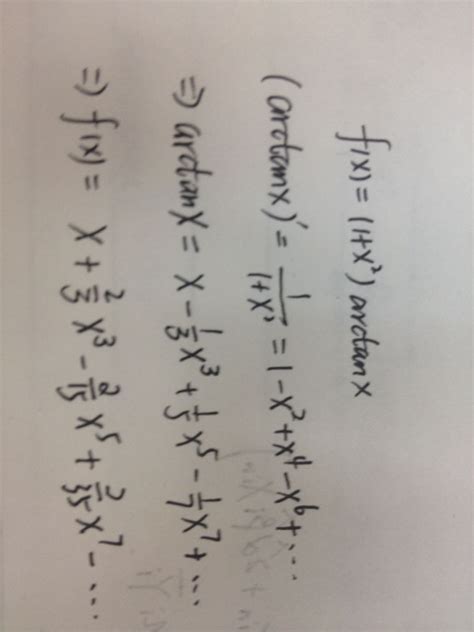 f(x) = (1+x²) arctanx
(arctanx)' = 1/(1+x²) = 1 - x² + x⁴ - x⁶ + ...
⇒ arctanx = x - 1/3 x³ + 1/5 x⁵ - 1/7 x⁷ + ...
⇒ f(x) = x + 2/3 x³ - 2/15 x⁵ + 2/35 x⁷ - ...